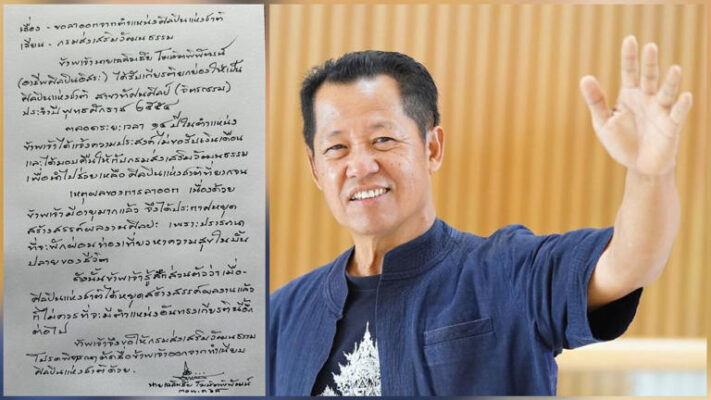 เรื่อง - ขอลาออกจากตำแหน่งศิลปินแห่งชาติ
เรียน - กรมส่งเสริมวัฒนธรรม
ข้าพเจ้านายเฉลิมชัย โฆษิตพิพัฒน์
(อาชีพศิลปินอิสระ) ได้รับเกียรติยกย่องให้เป็น
ศิลปินแห่งชาติ สาขาทัศนศิลป์ (จิตรกรรม)
ประจำปี พุทธศักราช ๒๕๕๔
ตลอดระยะเวลา ๑๔ ปีในตำแหน่ง
ข้าพเจ้าได้แจ้งความประสงค์ไม่ขอรับเงินเดือน
และได้มอบคืนให้กับกรมส่งเสริมวัฒนธรรม
เพื่อนำไปช่วยเหลือศิลปินแห่งชาติที่ยากจน
เหตุผลของการลาออก เนื่องด้วย
ข้าพเจ้ามีอายุมากแล้ว จึงได้ประกาศหยุด
สร้างสรรค์ผลงานศิลปะ เพราะปรารถนา
ที่จะพักผ่อนท่องเที่ยวหาความสุขในบั้น
ปลายของชีวิต
ดังนั้นข้าพเจ้ารู้สึกส่วนตัวว่าเมื่อ
ศิลปินแห่งชาติได้หยุดสร้างสรรค์ผลงานแล้ว
ก็ไม่ควรที่จะมีตำแหน่งอันทรงเกียรตินี้อีก
ต่อไป
ข้าพเจ้าจึงขอให้กรมส่งเสริมวัฒนธรรม
โปรดพิจารณาตัดชื่อข้าพเจ้าออกจากทำเนียบ
ศิลปินแห่งชาติด้วย.
นายเฉลิมชัย โฆษิตพิพัฒน์